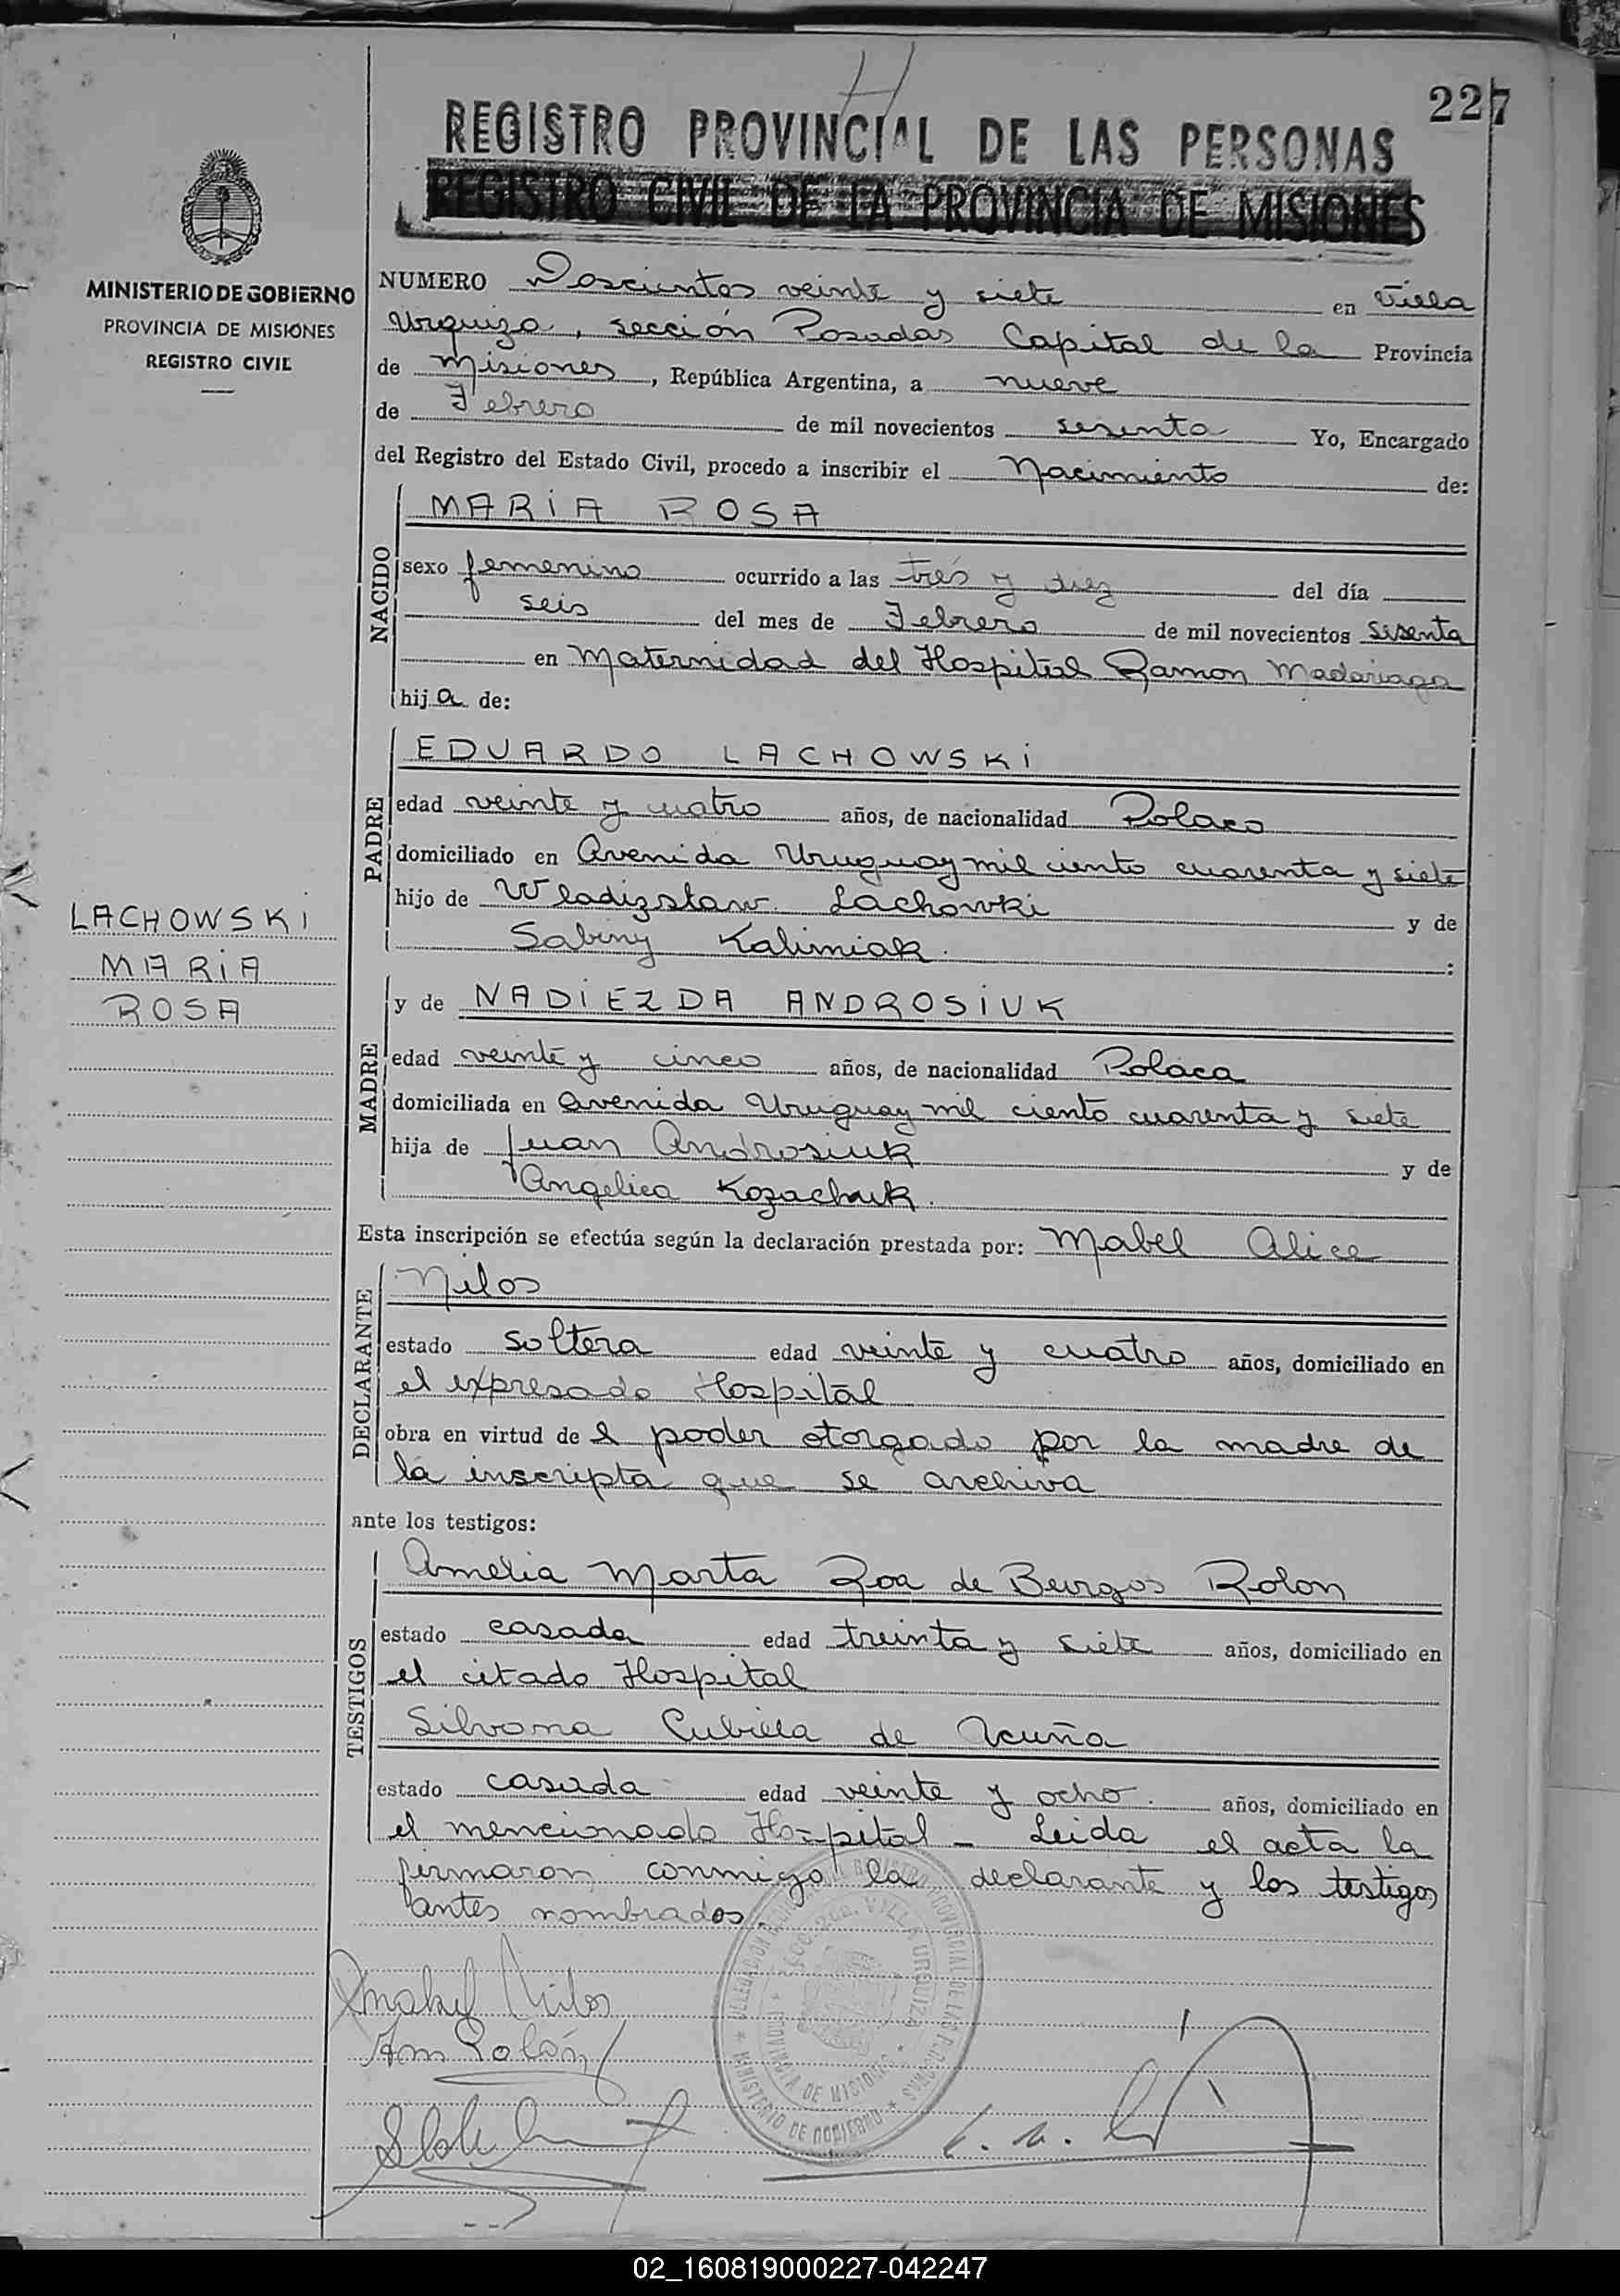 227
REGISTRO PROVINCIAL DE LAS PERSONAS
REGISTRO CIVIL DE LA PROVINCIA DE MISIONES
MINISTERIO DE GOBIERNO
PROVINCIA DE MISIONES
REGISTRO CIVIL
NUMERO Doscientos veinte y siete en Villa
Urquiza, sección Posadas Capital de la Provincia
de Misiones, República Argentina, a nueve
de Febrero de mil novecientos sesenta Yo, Encargado
del Registro del Estado Civil, procedo a inscribir el Nacimiento de:
NACIDO
MARIA ROSA
sexo femenino ocurrido a las tres y diez del día
seis del mes de Febrero de mil novecientos sesenta
en Maternidad del Hospital Ramon Madariaga
hija de:
PADRE
EDUARDO LACHOWSKI
edad veinte y cuatro años, de nacionalidad Polaco
domiciliado en Avenida Uruguay mil ciento cuarenta y siete
hijo de Wladizslaw Lachowki y de
Sabiny Kalimiak.:
LACHOWSKI
MARIA
ROSA
MADRE
y de NADIEZDA ANDROSIUK
edad veinte y cinco años, de nacionalidad Polaca
domiciliada en Avenida Uruguay mil ciento cuarenta y siete
hija de Juan Androsiuk y de
Angelica Kozachuk.
Esta inscripción se efectúa según la declaración prestada por: Mabel Alice
DECLARANTE
Milos
estado Soltera edad veinte y cuatro años, domiciliado en
el expresado Hospital
obra en virtud de el poder otorgado por la madre de
la inscripta que se archiva
ante los testigos:
TESTIGOS
Amelia Marta Roa de Burgos Rolon
estado casada edad treinta y siete años, domiciliado en
el citado Hospital
Silvana Cubilla de Acuña
estado casada edad veinte y ocho. años, domiciliado en
el mencionado Hospital - Leida el acta la
firmaron conmigo la declarante y los testigos
antes nombrados.
Mabel Milos
Am Rolón
VILLA URQUIZA
PROVINCIA DE MISIONES
MINISTERIO DE GOBIERNO
02_160819000227-042247